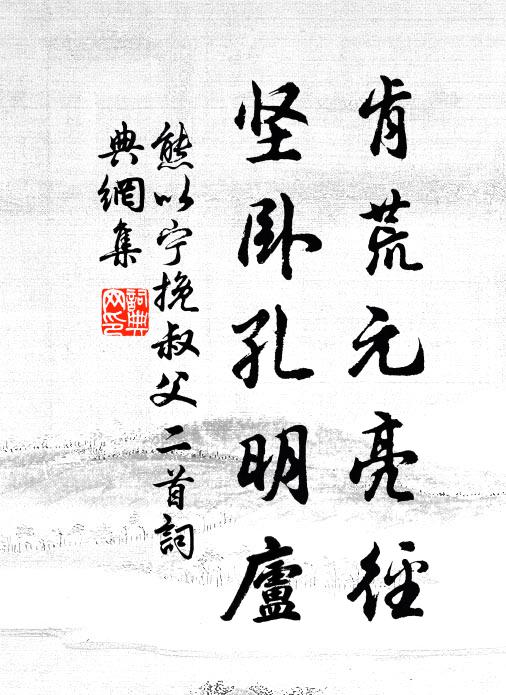 肯荒元亮径
坚卧孔明廬
熊以宁挽叔父二首詞
典網集
詞典
网印